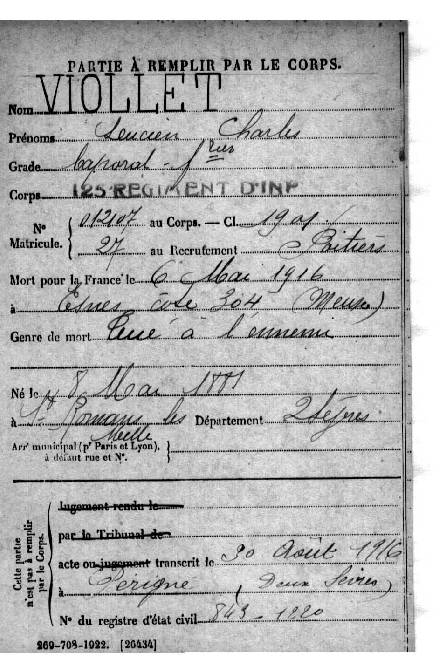 PARTIE À REMPLIR PAR LE CORPS.
Nom VIOLLET
Prénoms Lucien Charles
Grade Caporal - frier
Corps 125 REGIMENT D'INF
N° Matricule. { 012107 au Corps. — Cl. 1901
27 au Recrutement Poitiers
Mort pour la France le 6 Mai 1916
à Esnes côte 304 (Meuse)
Genre de mort Tué à l'ennemi
Né le 8 Mai 1881
à St Romans les Melle Département 2 Sèvres
Arrt municipal (pr Paris et Lyon), à défaut rue et N°. }
Cette partie n'est pas à remplir par le Corps.
jugement rendu le
par le Tribunal de
acte ou jugement transcrit le 30 Août 1916
à Périgné (Deux Sèvres)
N° du registre d'état civil 843 - 1220
269-708-1922. [26434]